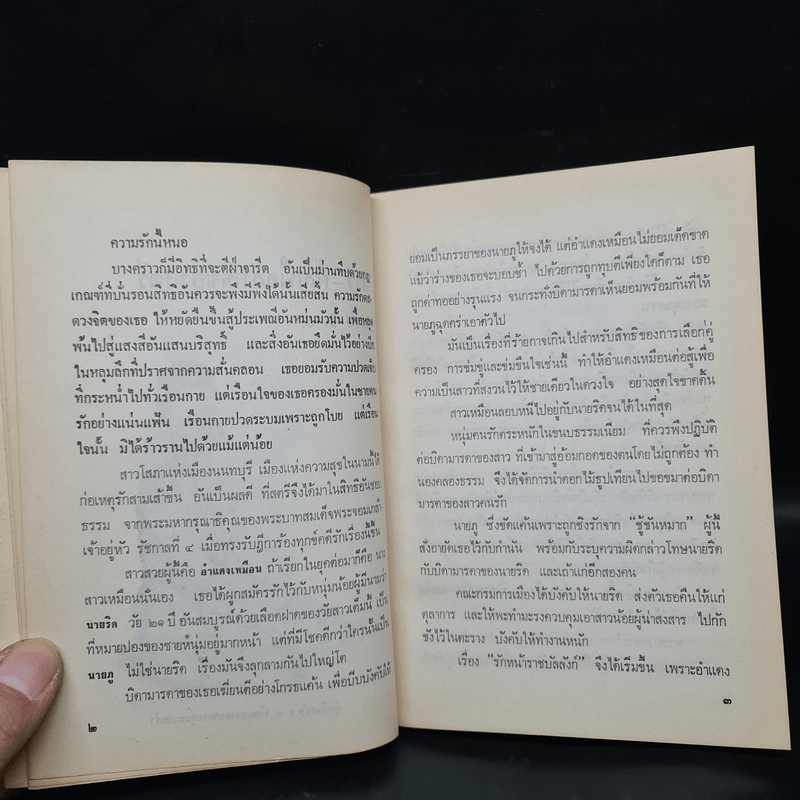 ความรักนี้หนอ
บางคราวก็มีอิทธิที่จะตีฝ่าจารีต อันเป็นม่านทึบด้วยกฎ
เกณฑ์ที่บั่นรอนสิทธิอันควรจะพึงมีพึงได้นั้นเสียสิ้น ความรัก
ดวงจิตของเธอ ให้หยัดยืนขึ้นสู้ประเพณีอันหม่นมัวนั้น เพื่อหลุด
พ้นไปสู่แสงสีอันแสนบริสุทธิ์ และสิ่งอันเธอยึดมั่นไว้อย่าง
ในหลุมลึกที่ปราศจากความสั่นคลอน เธอยอมรับความปวดเจ็บ
ที่กระหน่ำไปทั่วเรือนกาย แต่เรือนใจของเธอครองมั่นในชายคน
รักอย่างแน่นแฟ้น เรือนกายปวดระบมเพราะถูกโบย แต่เรือน
ใจนั้น มิได้ร้าวรานไปด้วยแม้แต่น้อย
สาวโสภาแห่งเมืองนนทบุรี เมืองแห่งความสุขในนามนี้ได้
ก่อเหตุรักสามเส้าขึ้น อันเป็นผลดี ที่สตรีจึงได้มาในสิทธิอันชอบ
ธรรม จากพระมหากรุณาธิคุณของพระบาทสมเด็จพระจอมเกล้า
เจ้าอยู่หัว รัชกาลที่ ๔ เมื่อทรงรับฎีการ้องทุกข์คดีรักเรื่องนี้ขึ้น
สาวสวยผู้นี้คือ อำแดงเหมือน ถ้าเรียกในยุคต่อมาก็คือ นาง
สาวเหมือนนั่นเอง เธอได้ผูกสมัครรักไว้กับหนุ่มน้อยผู้มีนามว่า
นายริด วัย ๒๑ ปี อันสมบูรณ์ด้วยเลือดฝาดของวัยสาวเต็มนี้ เป็น
ที่หมายปองของชายหนุ่มอยู่มากหน้า แต่ที่มีโชคดีกว่าใครนั้นเป็น
นายภู ไม่ใช่นายริด เรื่องมันจึงลุกลามกันไปใหญ่โต
บิดามารดาของเธอเฆี่ยนตีอย่างโกรธแค้น เพื่อบีบบังคับให้
๒
ยอมเป็นภรรยาของนายภูให้จงได้ แต่อำแดงเหมือนไม่ยอมเด็ดขาด
แม้ว่าร่างของเธอจะบอบช้ำ ไปด้วยการถูกทุบตีเพียงใดก็ตาม เธอ
ถูกด่าทออย่างรุนแรง จนกระทั่งบิดามารดาเห็นยอมพร้อมกันที่ให้
นายภูฉุดคร่าเอาตัวไป
มันเป็นเรื่องที่ร้ายกาจเกินไปสำหรับสิทธิของการเลือกคู่
ครอง การข่มขู่และข่มขืนใจเช่นนี้ ทำให้อำแดงเหมือนต่อสู้เพื่อ
ความเป็นสาวที่สงวนไว้ให้ชายเดียวในดวงใจ อย่างสุดใจขาดดิ้น
สาวเหมือนลอบหนีไปอยู่กับนายริดจนได้ในที่สุด
หนุ่มคนรักตระหนักในขนบธรรมเนียม ที่ควรพึงปฏิบัติ
ต่อบิดามารดาของสาว ที่เข้ามาสู่อ้อมกอดของตนโดยไม่ถูกต้อง ทำ
นองคลองธรรม จึงได้จัดการนำดอกไม้ธูปเทียนไปขอขมาต่อบิดา
มารดาของสาวคนรัก
นายภู ซึ่งขัดแค้นเพราะถูกชิงรักจาก "ชู้ขันหมาก" ผู้นี้
สั่งอายัดเธอไว้กับกำนัน พร้อมกับระบุความผิดกล่าวโทษนายริด
กับบิดามารดาของนายริด และเถ้าแก่อีกสองคน
คณะกรมการเมืองได้บังคับให้นายริด ส่งตัวเธอคืนให้แก่
ตุลาการ และให้พะทำมะรงควบคุมเอาสาวน้อยผู้น่าสงสาร ไปกัก
ขังไว้ในตะราง บังคับให้ทำงานหนัก
เรื่อง "รักหน้าราชบัลลังก์" จึงได้เริ่มขึ้น เพราะอำแดง
๓